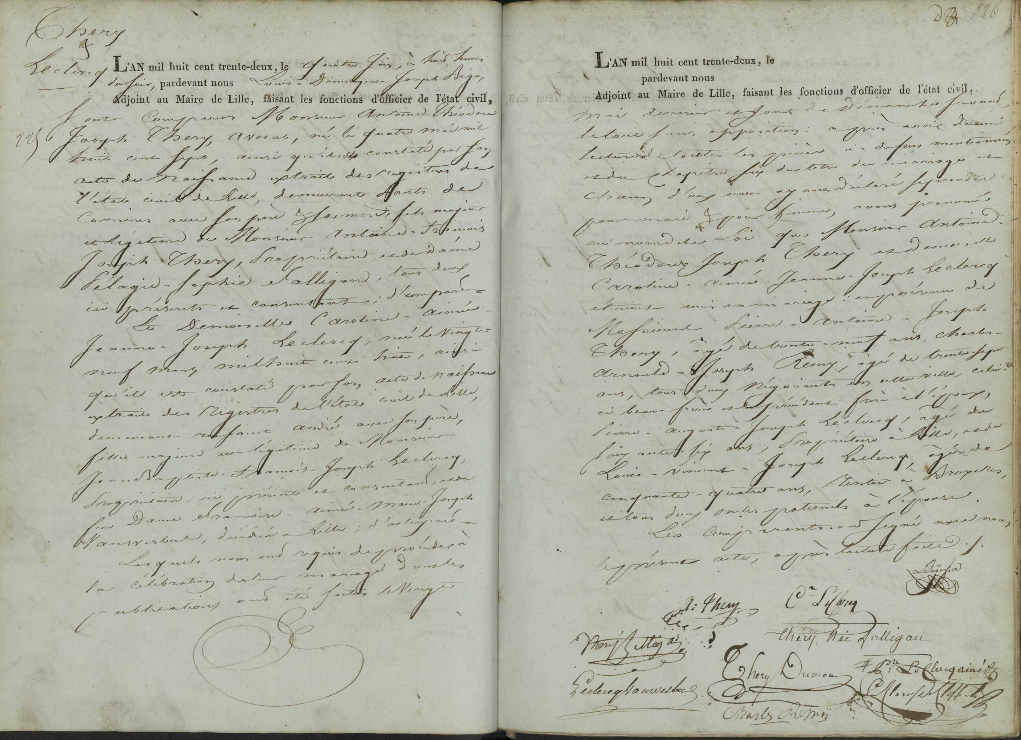 Thery
&
Leclercq
L'AN mil huit cent trente-deux, le quatre Juin, à huit heures
du soir, pardevant nous Louis-Dominique-Joseph
Adjoint au Maire de Lille, faisant les fonctions d'officier de l'état civil,
sont comparus Monsieur Antoine Théodore
Joseph Thery, Avocat, né le quatre mai mil
huit cent sept, ainsi qu'il est constaté par son
acte de Naissance extrait des registres de
l'état civil de Lille, demeurant
avec son père &, fils majeur
et légitime de Monsieur Antoine-François
Joseph Thery, Propriétaire et de dame
Pélagie-Sophie Dalligau, tous deux
ici présents et consentants, d'une part
Et Demoiselle Caroline-Aimée-
Jeanne-Joseph Leclercq, née le vingt-
neuf mars mil huit cent huit, ainsi
qu'il est constaté par son acte de Naissance
extrait des Registres de l'état civil de Lille,
demeurant rue Saint André avec son père,
fille majeure et légitime de Monsieur
Jean-Baptiste-François-Joseph Leclercq,
Propriétaire ici présent et consentant, et de
feu Dame Aimée-Marie Joseph
décédée à Lille, d'autre part
Lesquels nous ont requis de procéder à
la célébration de leur mariage dont les
publications ont été faites le vingt
126
L'AN mil huit cent trente-deux, le
pardevant nous
Adjoint au Maire de Lille, faisant les fonctions d'officier de l'état civil,
mai dernier et jour de dimanche suivant
sans opposition: après avoir donné
lecture de toutes les pièces ci-dessus mentionnées
et du chapitre six du titre du mariage et
chacun d'eux nous ayant déclaré se prendre
pour mari & pour femme, nous prononçons
au nom de la Loi que Monsieur Antoine
Théodore Joseph Thery et demoiselle
Caroline-Aimée Jeanne-Joseph Leclercq
étaient unis en mariage en présence de
Messieurs Pierre-Antoine-Joseph
Thery, âgé de trente-neuf ans, Charles-
Arnould-Joseph Remy, âgé de trente sept
ans, tous deux Négociants en cette ville, celui
ci beau frère et le précédent frère à l'époux,
Pierre-Auguste-Joseph Leclercq, âgé de
soixante-six ans, Propriétaire à Lille, et de
Louis-Vincent-Joseph Leclercq, âgé de
cinquante-quatre ans, Rentier à Bruxelles,
et tous deux oncles paternels à l'épouse.
Les comparants ont signé avec nous
le présent acte, après lecture faite.
A: Thery
Cne Leclercq
Théry née Dalligau
Thery Dumon
Leclercq
Charles Remy